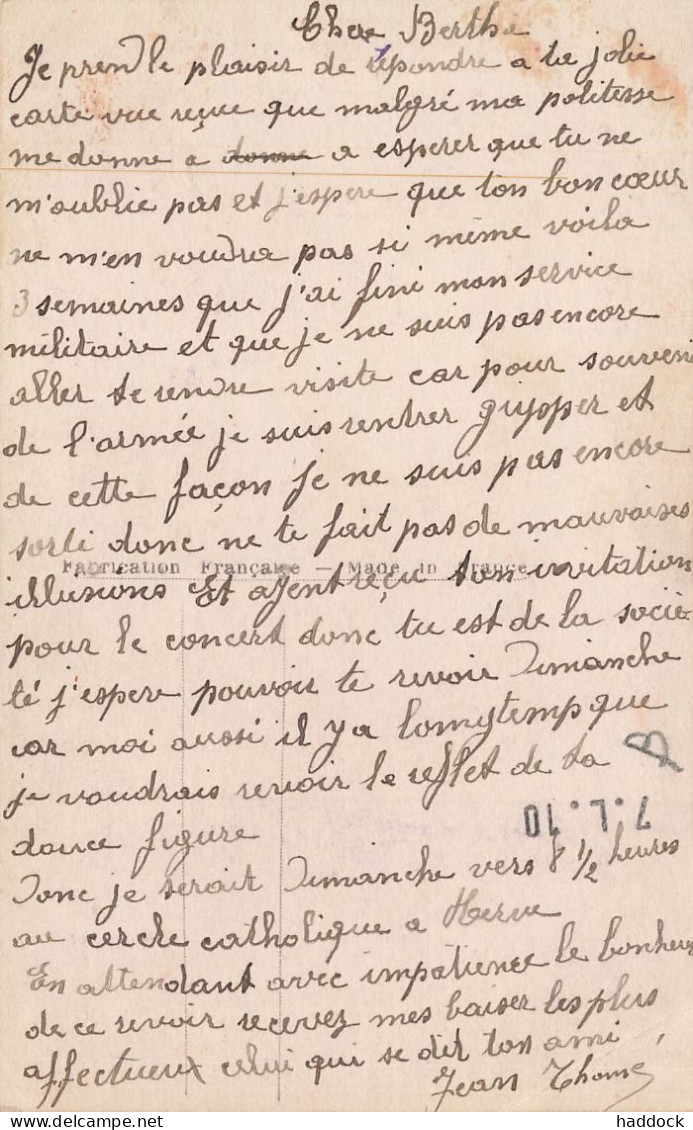 Chere Berthe
Je prend le plaisir de repondre a ta jolie
carte vue reçue que malgré ma politesse
me donne a donne a esperer que tu ne
m'oublie pas et j'espere que ton bon cœur
ne m'en voudra pas si même voila
3 semaines que j'ai fini mon service
militaire et que je ne suis pas encore
aller te rendre visite car pour souveni
de l'armée je suis rentrer gripper et
de cette façon je ne suis pas encore
sorti donc ne te fait pas de mauvaises
Fabrication Française — Made in France
illusions Et ajent reçu ton invitation
pour le concert donc tu est de la socié-
té j'espere pouvoir te revoir Dimanche
car moi aussi il y a lomgtemp que
je voudrais revoir le reflet de ta
douce figure
B
7.L.10
Donc je serait Dimanche vers 8 1/2 heures
au cercle catholique a Herve
En attendant avec impatience le bonheur
de ce revoir recevez mes baiser les plus
affectueux celui qui se dit ton ami
Jean Thomé
haddock